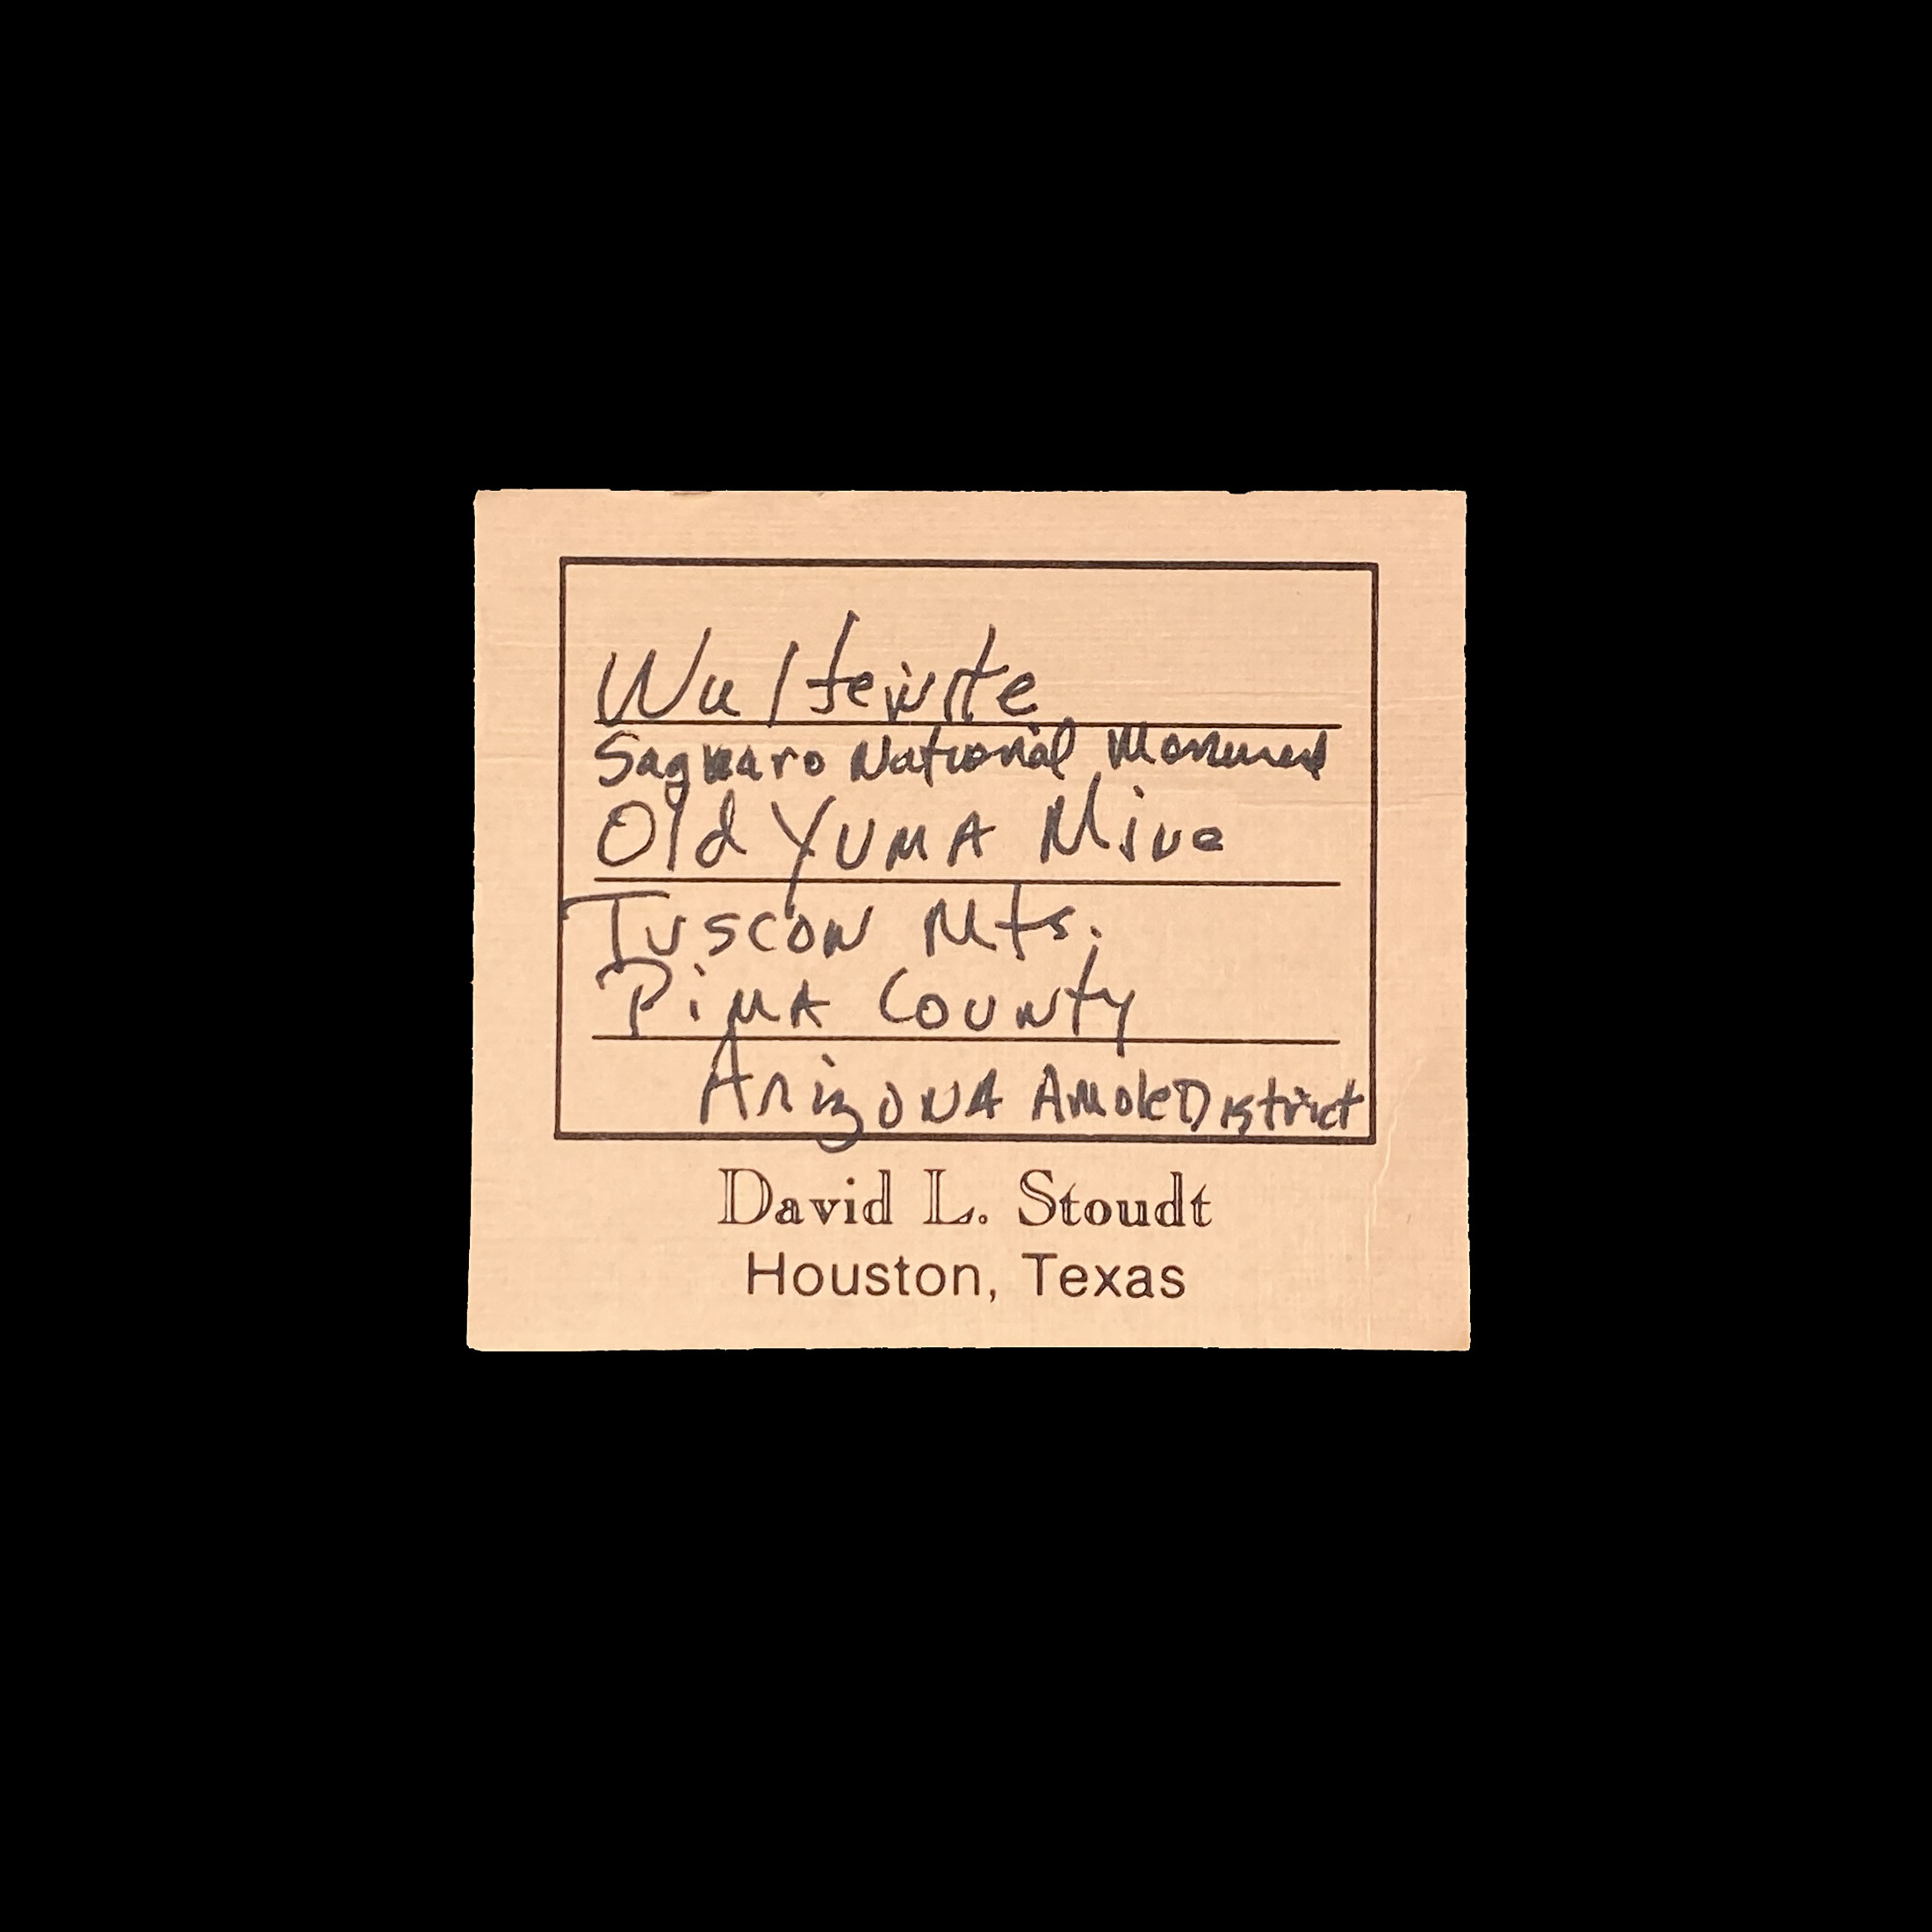 Wulfenite
Saguaro National Monument
Old Yuma Mine
Tuscon Mts.
Pima County
Arizona Amole District
David L. Stoudt
Houston, Texas